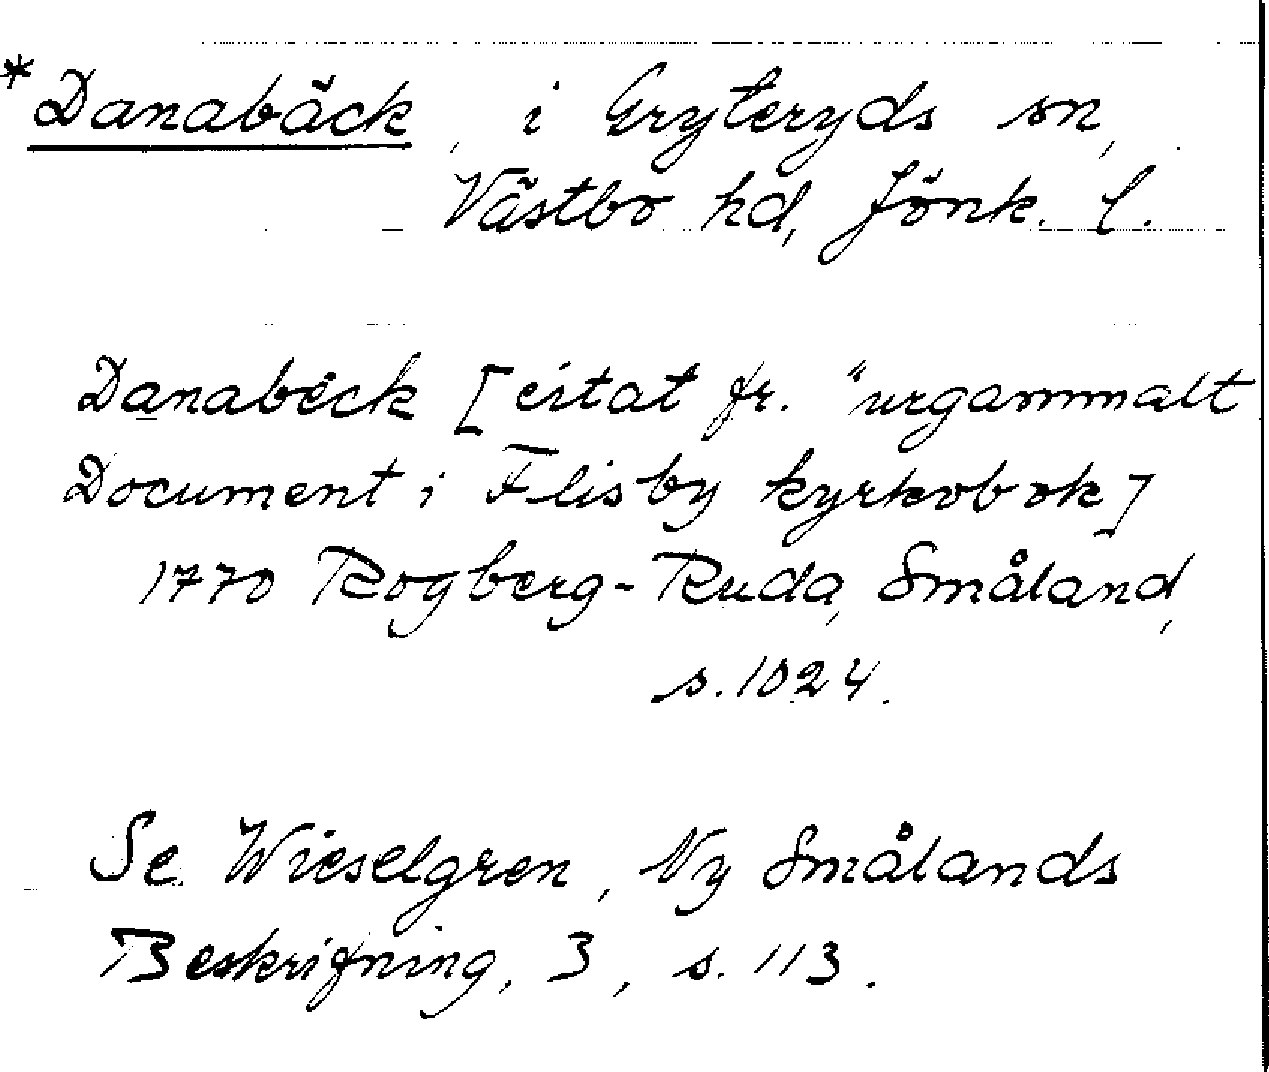 *Danabäck, i Gryteryds sn,
Västbo hd, Jönk. l.
Danabëck [citat fr. "urgammalt
Document i Flisby kyrkobok]
1770 Rogberg-Ruda, Småland,
s. 1024.
Se Wieselgren, Ny Smålands
Beskrifning, 3, s. 113.